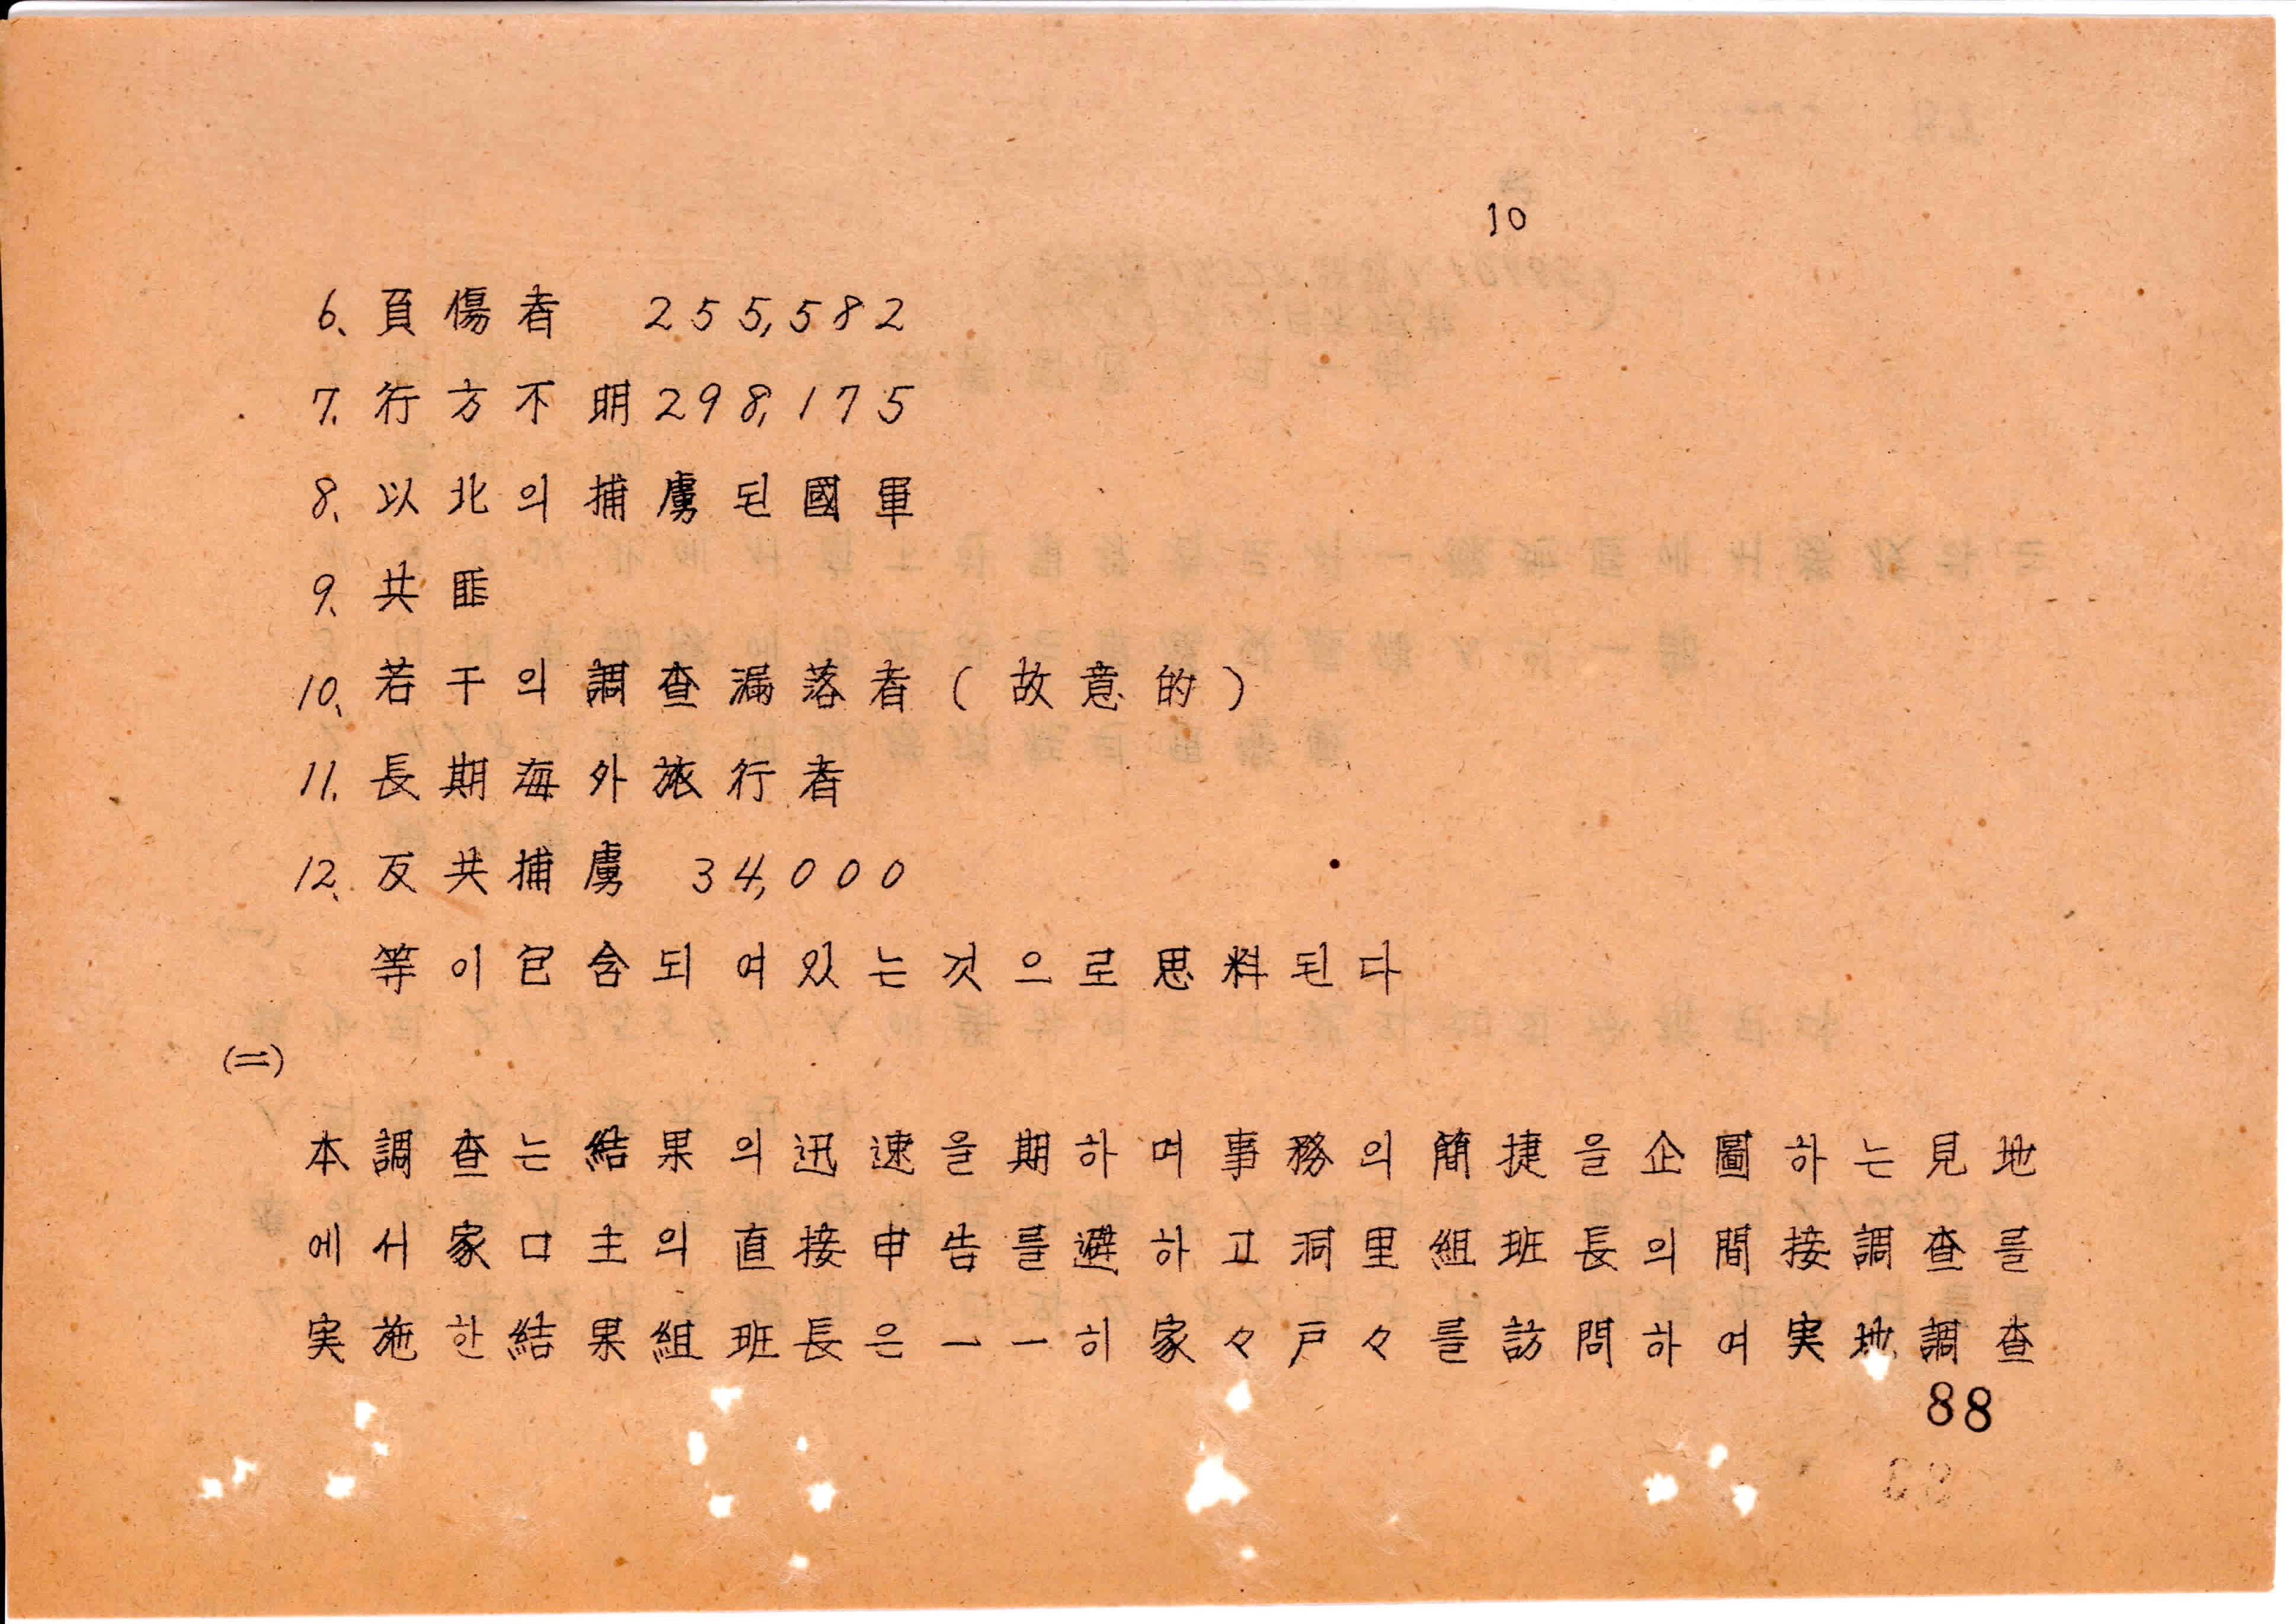 10
6. 負傷者 255,582
7. 行方不明 298,175
8. 以北의捕虜된國軍
9. 共匪
10. 若干의調査漏落者(故意的)
11. 長期海外旅行者
12. 反共捕虜 34,000
等이包含되여있는것으로思料된다
(二)
本調査는結果의迅速을期하며事務의簡捷을企圖하는見地
에서家口主의直接申告를避하고洞里組班長의間接調査를
実施한結果組班長은一一히家々戸々를訪問하여実地調査
88